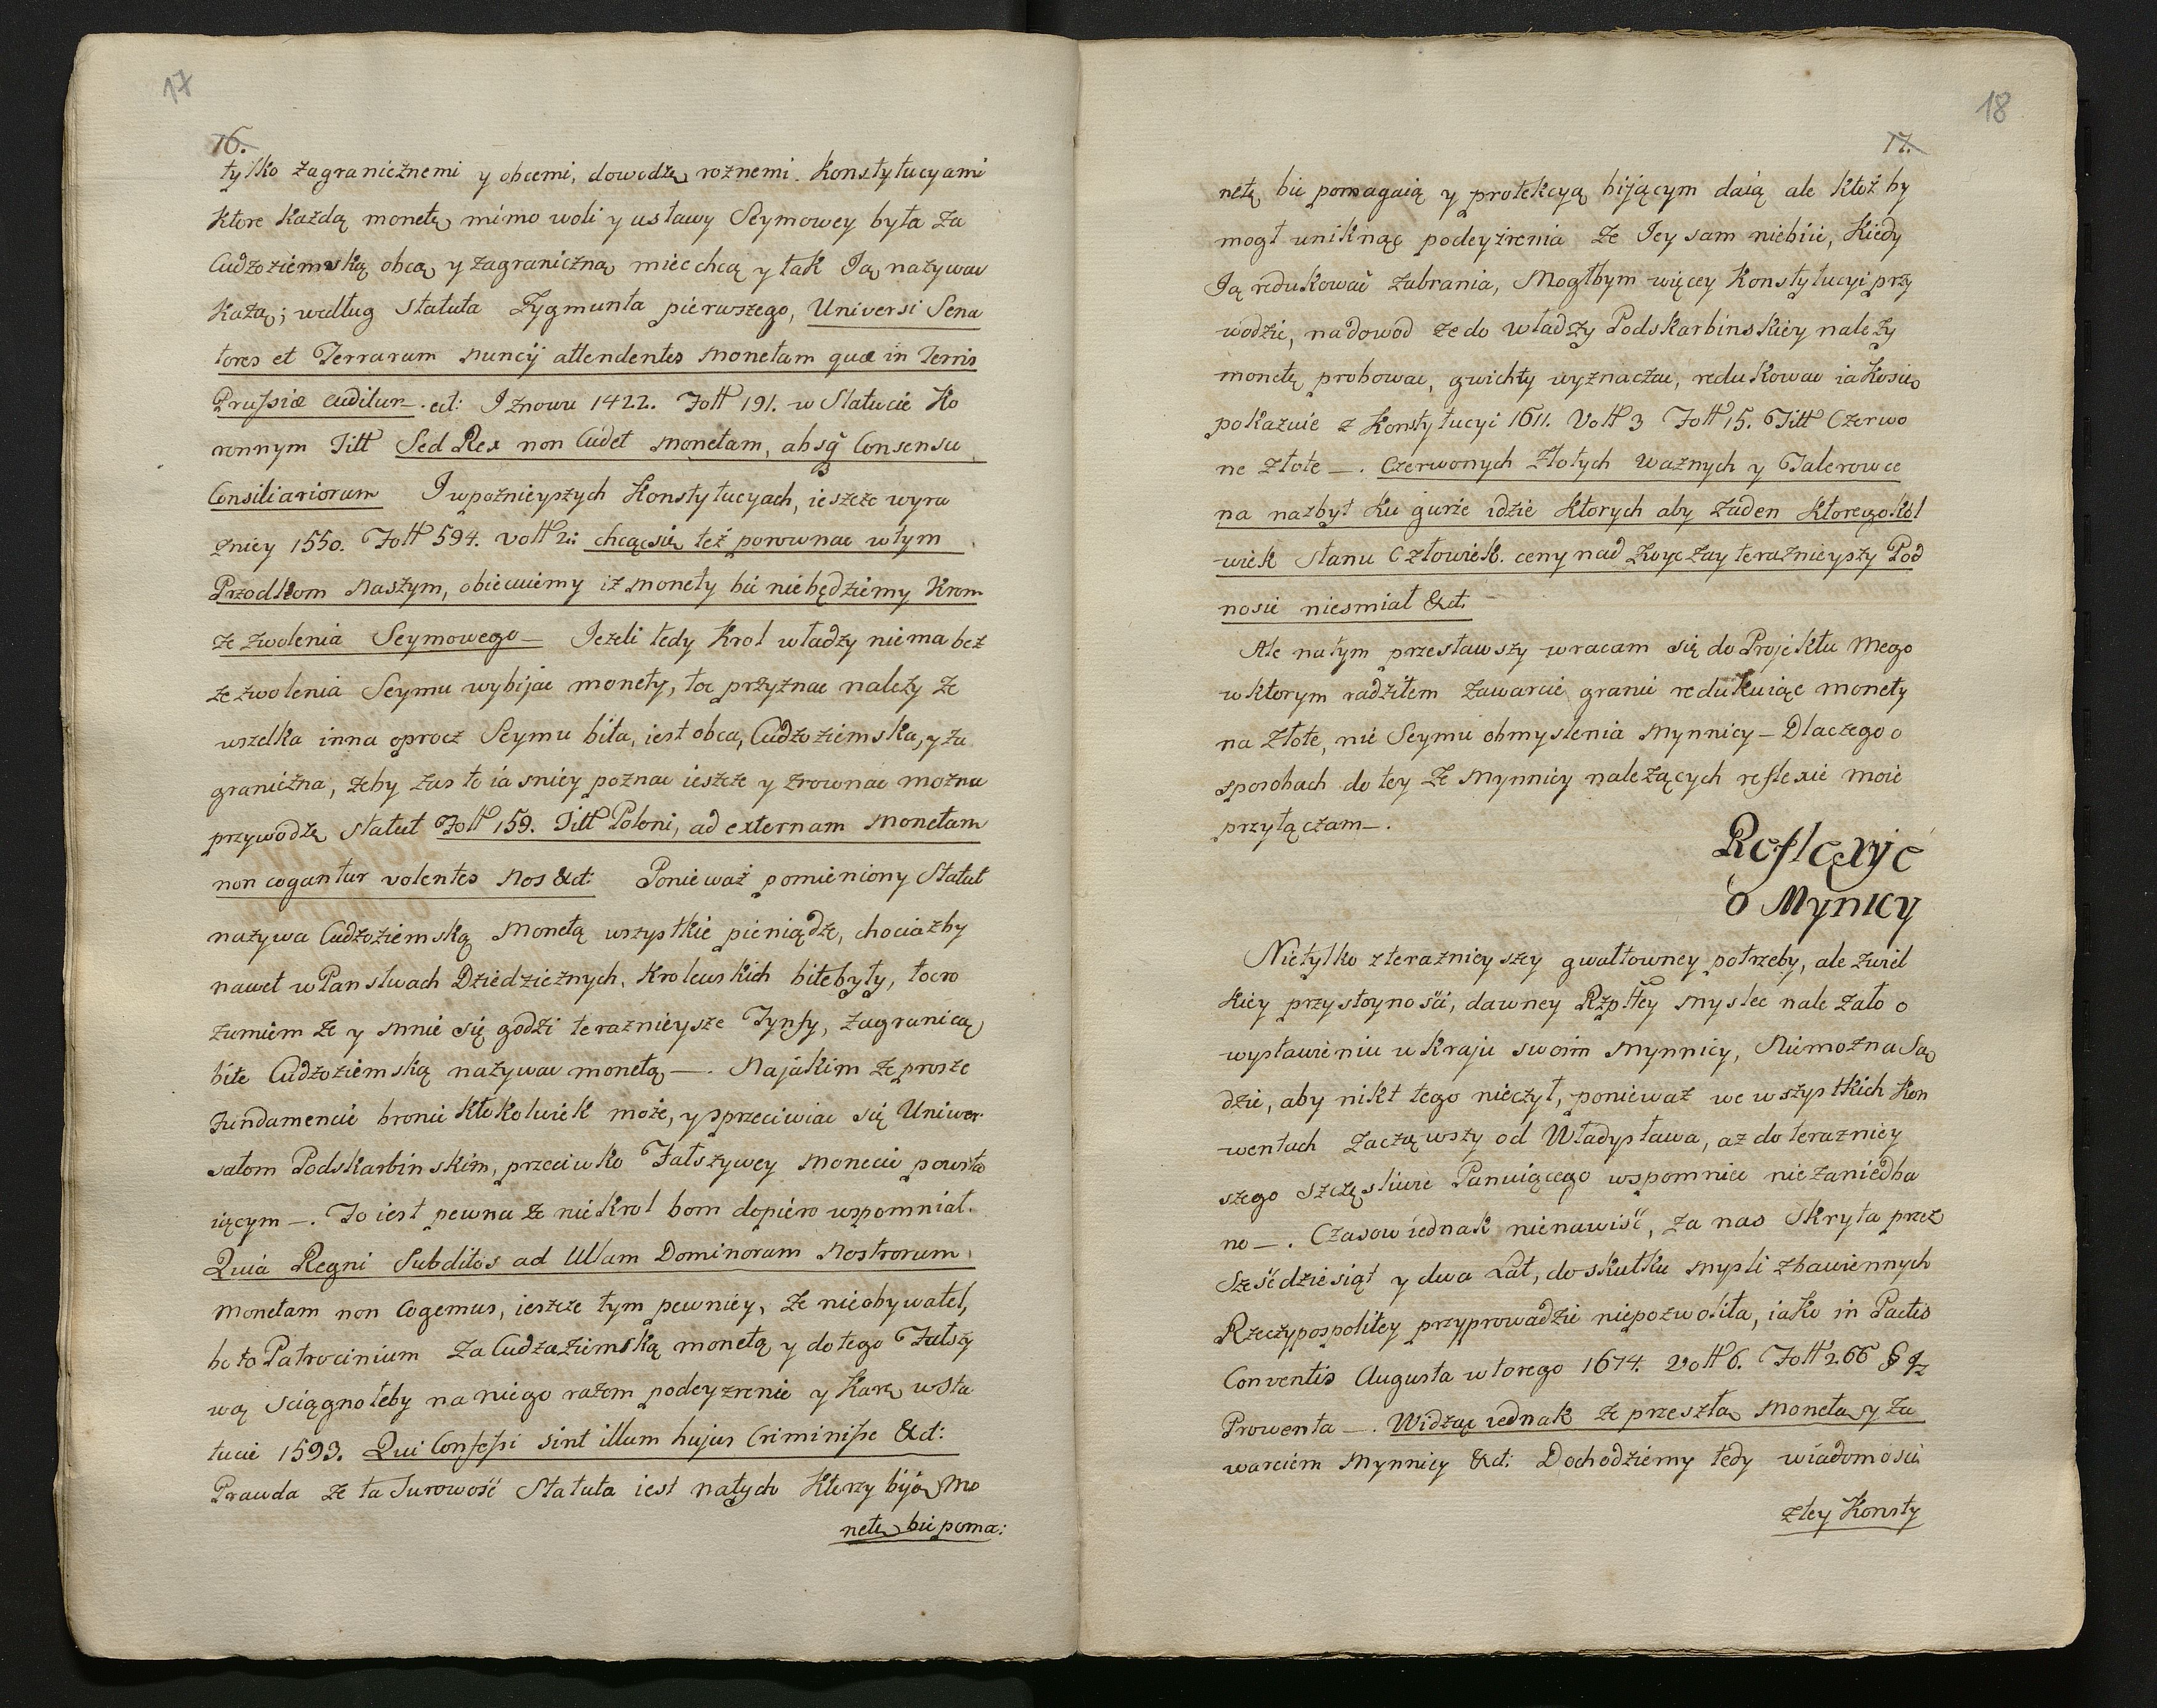 17
16.
tylko zagranicznemi y obcemi, dowodzę roznemi Konstytucyami
ktore każdą monetę mimo woli y ustawy Seymowey byta za
Cudzoziemską obcą y zagraniczną miec chcą y tak Ją nazywac
każą; według statuta Zygmunta pierwszego, Universi Sena
tores et Terraram nuncij attendentes monetam quæ in Terris
Prussiæ cuditur. ect: I znowu 1422. Foll 191. w Statucie Ko
ronnym Titt Sed Rex non Cudet monetam, absq Consensu
Consiliariorum I wpoznieyszych Konstytucyach, ieszcze wyra
zniey 1550. Foll 594. voll 2: chcąc się też porownac wtym
Przodkom naszym, obiecuiemy iz monety bic niebędziemy krom
ze zwolenia Seymowego — Jeżeli tedy Krol władzy niema bez
ze zwolenia Seymu wybijac monety, toc przyznac nalezy ze
wszelka inna oprocz Seymu bita, iest obca, Cudzoziemska, y za
graniczna, żeby zas to iasniey poznac ieszcze y zrownac mozna
przywodzę statut Foll 159. Titt Poloni, ad externam monetam
non cogantur volentes nos &ct: Ponieważ pomieniony Statut
nazywa Cudzoziemską monetą wszystkie pieniądze, chociażby
nawet w Panstwach Dziedzicznych, Krolewskich bite były, toc ro
zumiem ze y mnie się godzi teraznieysze Tynfy, zagranicą
bite Cudzoziemską nazywac monetą —. Na jakim ze prosze
Fundamencie bronic ktokolwiek może, y sprzeciwiac się Uniwer
satom Podskarbinskim, przeciwko Fałszywey monecie powsta
iącym —. To iest pewna ze nie Krol bom dopiero wspomniał.
Quia Regni Subditos ad Ullam Dominoram Nostrorum
monetam non Cogemus, ieszcze tym pewniey, ze nieobywatel,
bo to Patrocinium za Cudzaziemską monetą y dotego Fałszy
wą sciągnoteby na niego razem podeyzrenie y karę w Sta
tucie 1593. Qui Confessi sint illum hujus Criminisse &ct:
Prawda ze ta surowość Statuta iest natych ktorzy biją mo
netę bic poma:
18
17.
netę bic pomagaią y protekcyą bijącym daią ale ktoż by
mogł uniknąć podeyzrenia ze Jey sam niebiie, kiedy
Ją redukować zabrania, Mogłbym więcey Konstytucyi przy
wodzic, nadowod ze do władzy Podskarbinskiey nalezy
monetę probowac, gwichty wyznaczac, redukowac iako się
pokazuie z Konstytucyi 1611. Voll 3 Foll 15. Titt Czerwo
ne złote —. Czerwonych Złotych waznych y Talerow ce
na nazbyt ku gurze idzie ktorych aby zaden ktoregokol
wiek stanu Człowiek. ceny nad zwyczay teraznieyszy Pod
nosic niesmiał &ct.
Ale natym przestawszy wracam się do Projektu mego
w ktorym radziłem zawarcie granic redukuiąc monety
na złote, nie Seymu obmyslenia mynnicy — Dlaczego o
sposobach do tey ze mynnicy nalezących reflexie moie
przyłączam —.
Reflexyje
o Mynicy
Nietylko zteraznieyszey gwałtowney potrzeby, ale zwiel
kiey przystoynosci, dawney Rzpltey myslec nalezało o
wystawieniu w kraju swoim mynnicy, Niemozna Są
dzic, aby nikt tego nieczył, ponieważ we wszystkich Kon
wentach zacząwszy od Władysława, az do terazniey
szego szczęsliwie Panuiącego wspomniec niezaniedba
no —. Czasow iednak nienawiść, za nas skryta przez
Sześćdziesiąt y dwa Lat, do skutku mysli zbawiennych
Rzeczypospolitey przyprowadzic niepozwoliła, iako in Pactis
Conventis Augusta wtorego 1674. Voll 6. Foll 266 §
Prowenta —. Widząc iednak ze przeszła moneta y za
warciem mynnicy &ct: Dochodziemy tedy wiadomosci
ztey Konsty